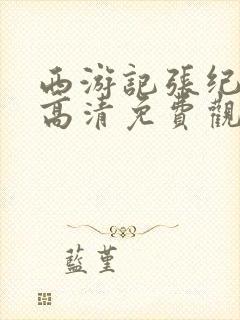 西游記張纪
高清免費觀
藍堇